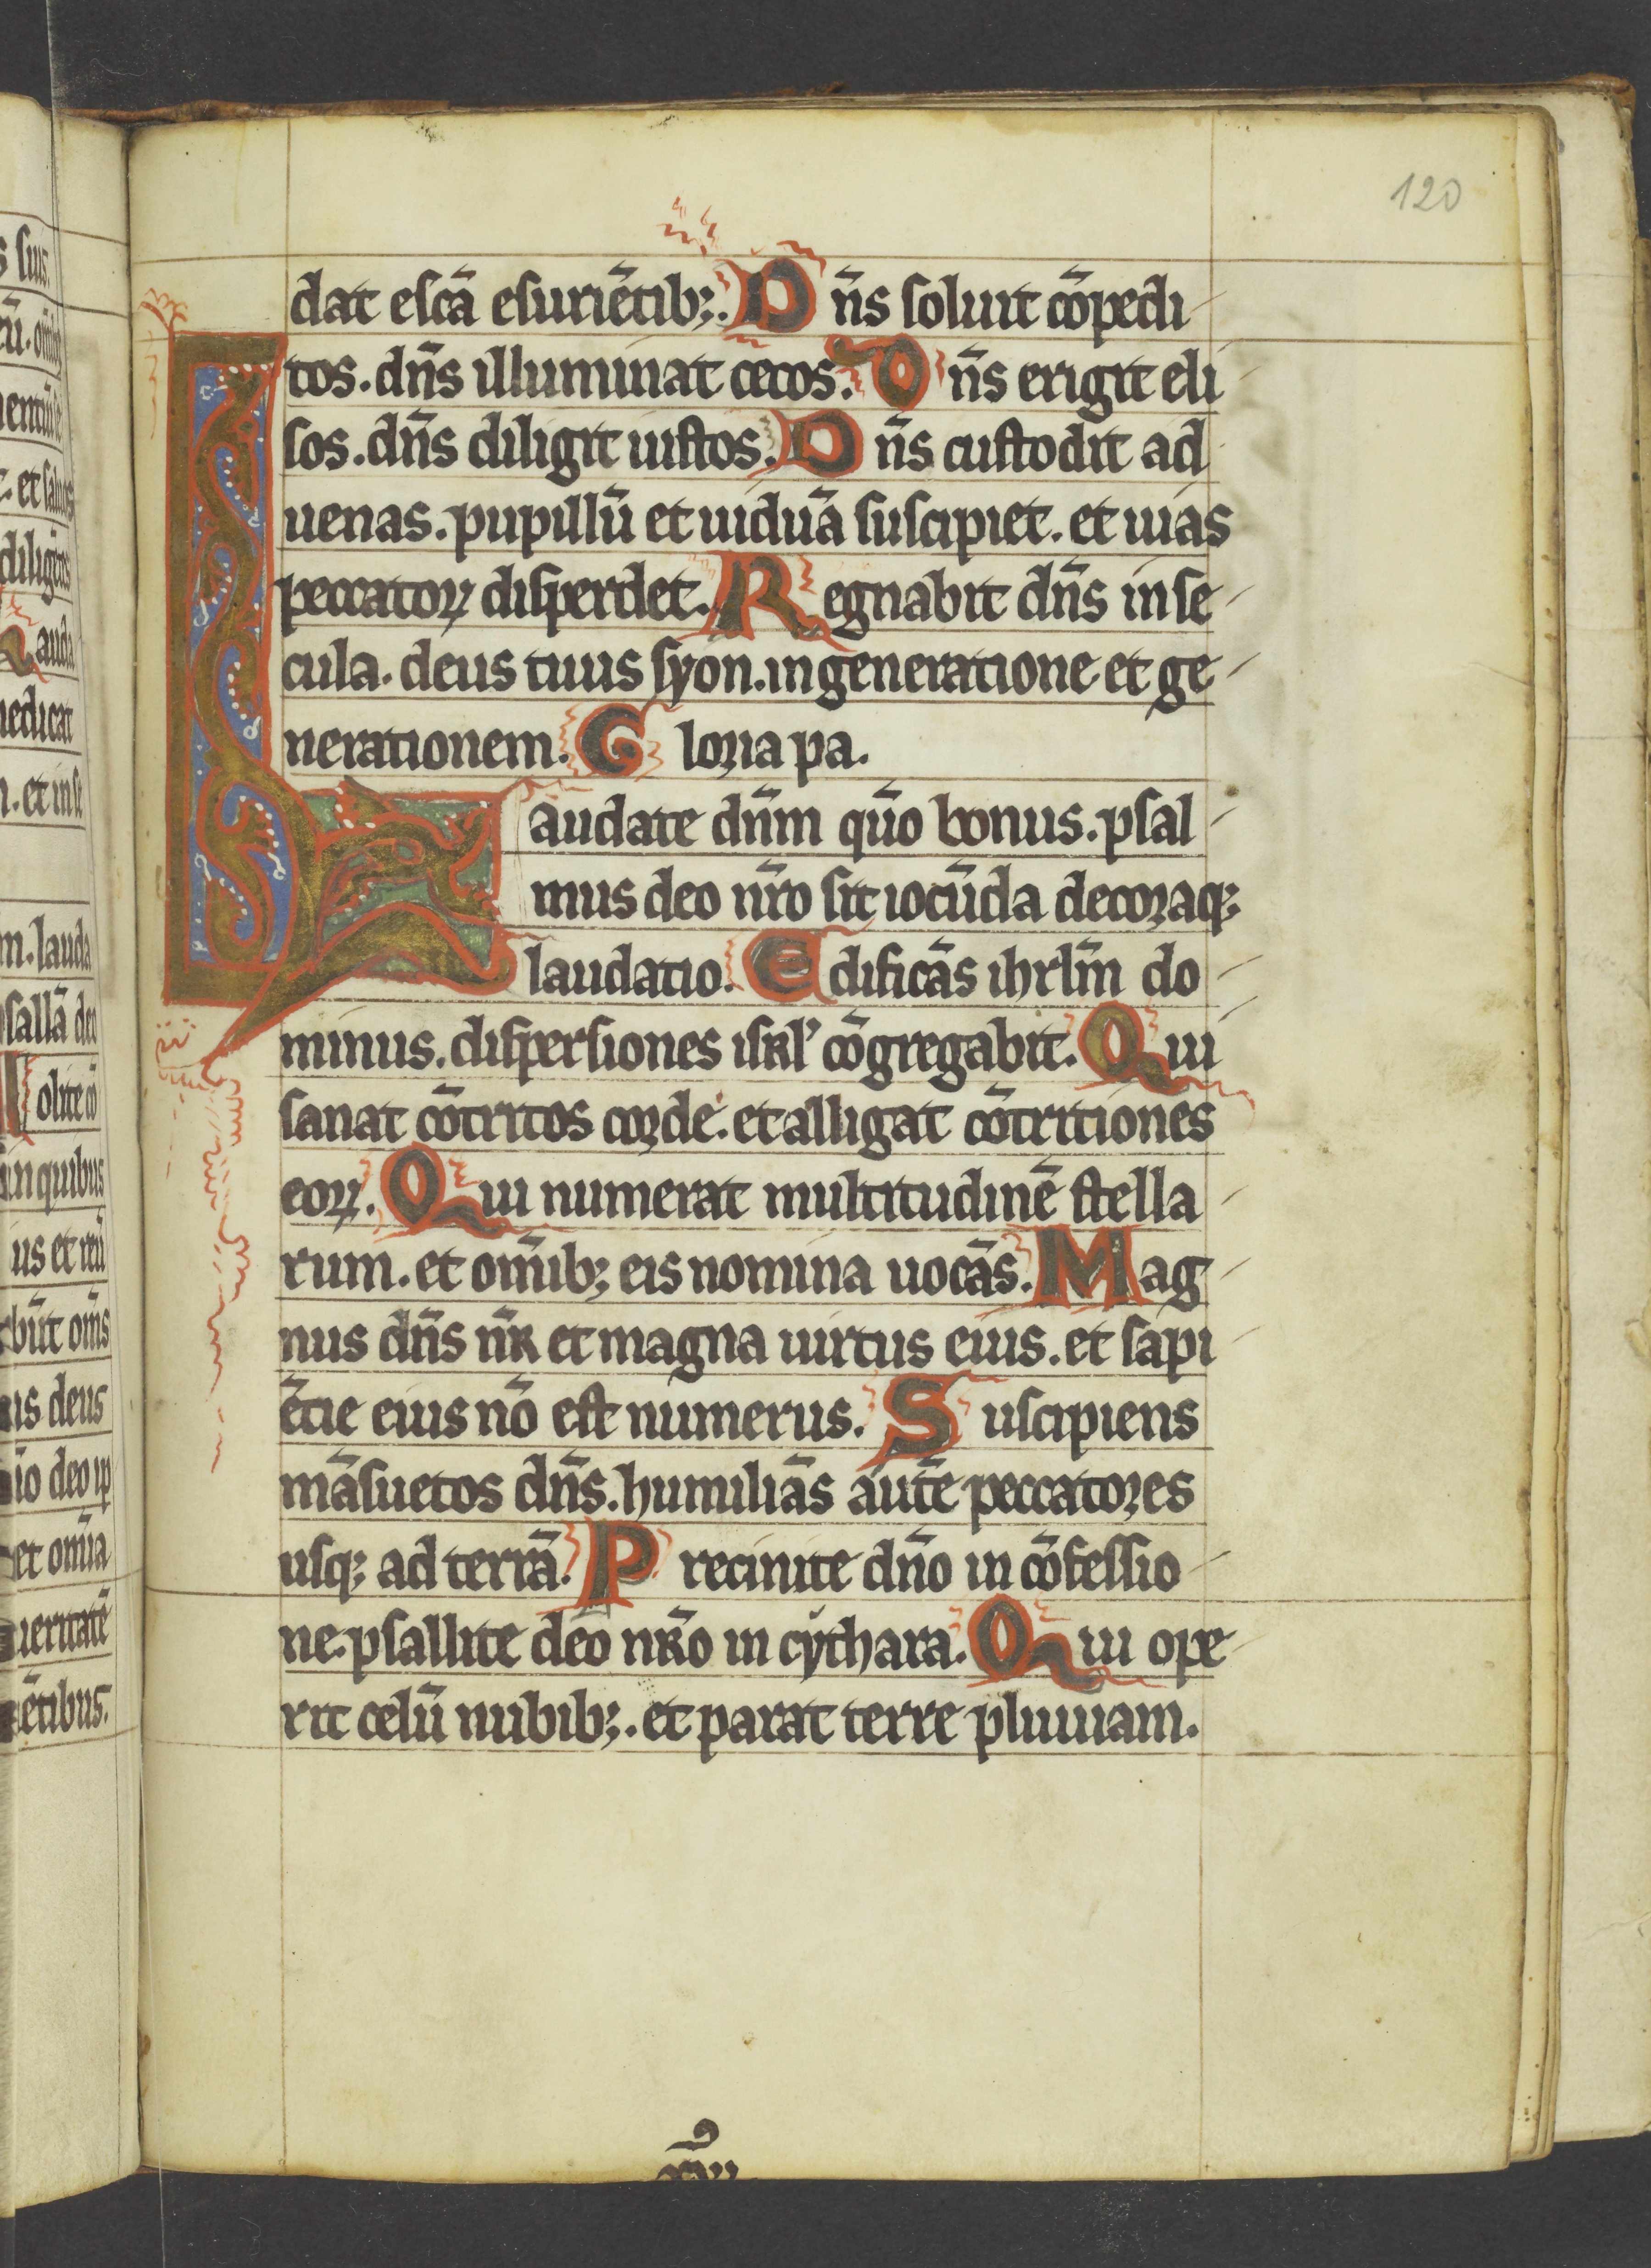 120
dat escā esuriētib;. Dn̄s soluit cōpedi
tos. dn̄s illuminat cecos. Dn̄s erigit eli
sos. dn̄s diligit iustos. Dn̄s custodit ad
uenas. pupillū et uiduā suscipiet. et uias
peccatoꝝ disperdet. Regnabit dn̄s in se
cula. deus tuus syon. in generatione et ge
nerationem. Gloria pa.
Laudate dn̄m qūo bonus. psal
mus deo nr̄o sit iocūda decoraq;
laudatio. Edificās ihrlm̄ do
minus. dispersiones isrl' cōgregabit. Qui
sanat cōtritos corde. et alligat cōtritiones
eoꝝ. Qui numerat multitudinē stella
rum. et om̄ib; eis nomina uocās. Mag
nus dn̄s nr̄ et magna uirtus eius. et sapi
ētie eius nō est numerus. Suscipiens
māsuetos dn̄s. humiliās autē peccatores
usq; ad terrā. Precinite dn̄o in cōfessio
ne. psallite deo nr̄o in cythara. Qui ope
rit celū nubib;. et parat terre pluuiam.